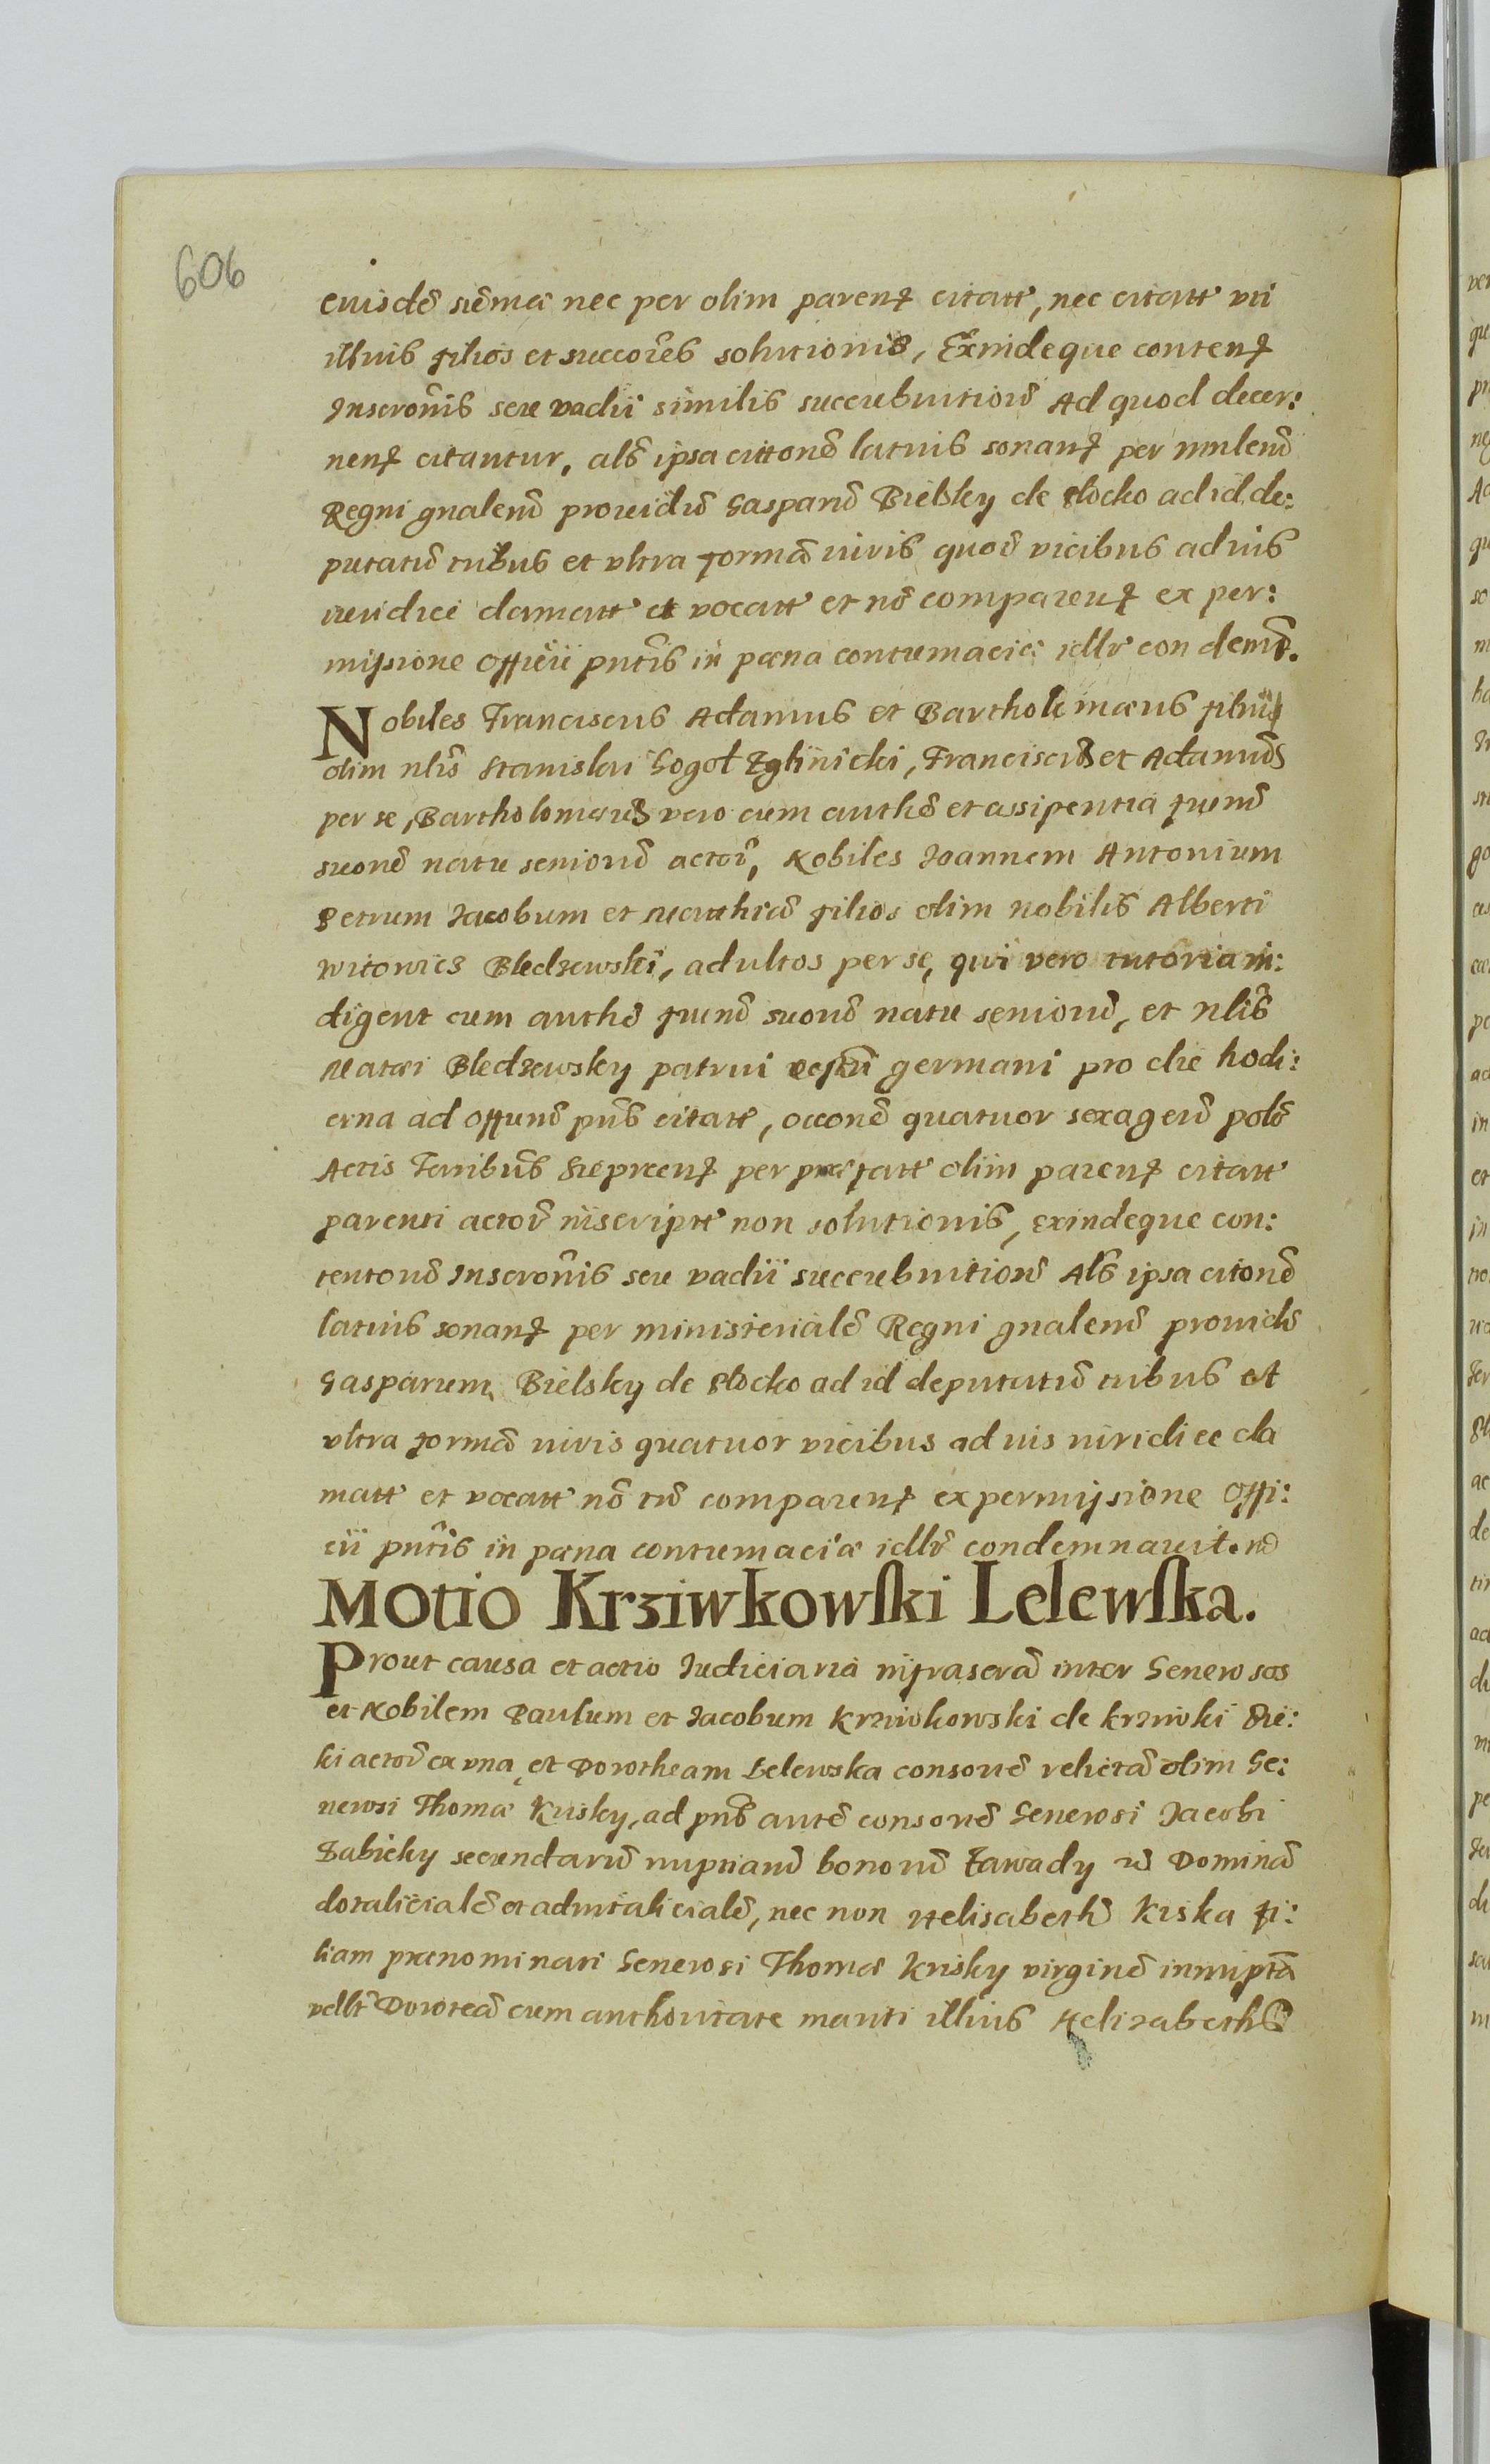 606
eiusdẽ sũmæ nec per olim parenꝭ citatt, nec citatt uti
illius filios et succores̃ solutionis, Exindeque contenꝭ
Inscrõnis seu vadii similis succubuitionẽ Ad quod decer:
nenꝭ citantur, als̃ ipsa cittonẽ latius sonanꝭ per mnlem̃
Regni gnalem̃ prouidũ Gasparũ Bielsky de Plocko ad id de:
putatũ tribus et vltra formã iuris quoũ vicibus ad ius
iuridice clamatt et vocatt et nõ comparenꝭ ex per:
missione Officii pntis̃ in pœna contumaciæ idlr̃ condemꝭ.
Nobiles Franciscus Adamus et Bartholomæus filii
olim nlis̃ Stanislai Gogol Zglinicki, Franciscus et Adamus
per se, Bartholomæus vero cum authẽ et assistentia frum̃
suorũ natu seniorũ actor̃, Nobiles Joannem Antonium
Petrum Jacobum et Mathiã filios olim nobilis Alberti
Witowicz Bledzewski, adultos per se, qui vero tutoria in:
digent cum authẽ frum̃ suorũ natu seniorũ, et nlis̃
Matæi Bledzewsky patrui germani pro die hodi:
erna ad Offium̃ pñs citatt, occonẽ quatuor sexagenũ polo
Actis Terribus̃ Sierpcenꝭ per præfatt olim parenꝭ citatt
parenti actor̃ inscriptt non solutionis, exindeque con:
tentorũ Inscrõnis seu vadii succubuitionẽ Als̃ ipsa citonẽ
latius sonanꝭ per ministerialẽ Regni gnalem̃ prouidũ
Gasparum Bielsky de Plocko ad id deputatũ tribus et
vltra formã iuris quatuor vicibus ad ius iuridice cla
matt et vocatt nõ tũ comparenꝭ ex permissione Offi:
cii pntis̃ in pœna contumaciæ idlr̃ condemnauit.
Motio Krziwkowski Lelewska.
Prout causa et actio Judiciaria infrascrã inter Generosos
et Nobilem Paulum et Jacobum Krziwkowski de Krziwki Pie:
ki actor̃ ex vna, et Dorotheam Lelewska consortẽ relictã olim Ge:
nerosi Thomæ Krisky, ad pñs autẽ consortẽ Generosi Jacobi
Babicky secundarũ nuptiarũ bonorũ Zawady uti Dominã
dotalicialẽ et aduitalicialẽ, nec non Helisabethã Kriska fi:
liam prænominati Generosi Thomæ Krisky virginẽ innuptã
vdlt̃ Doroteã cum authoritate mariti illius Helizabethã